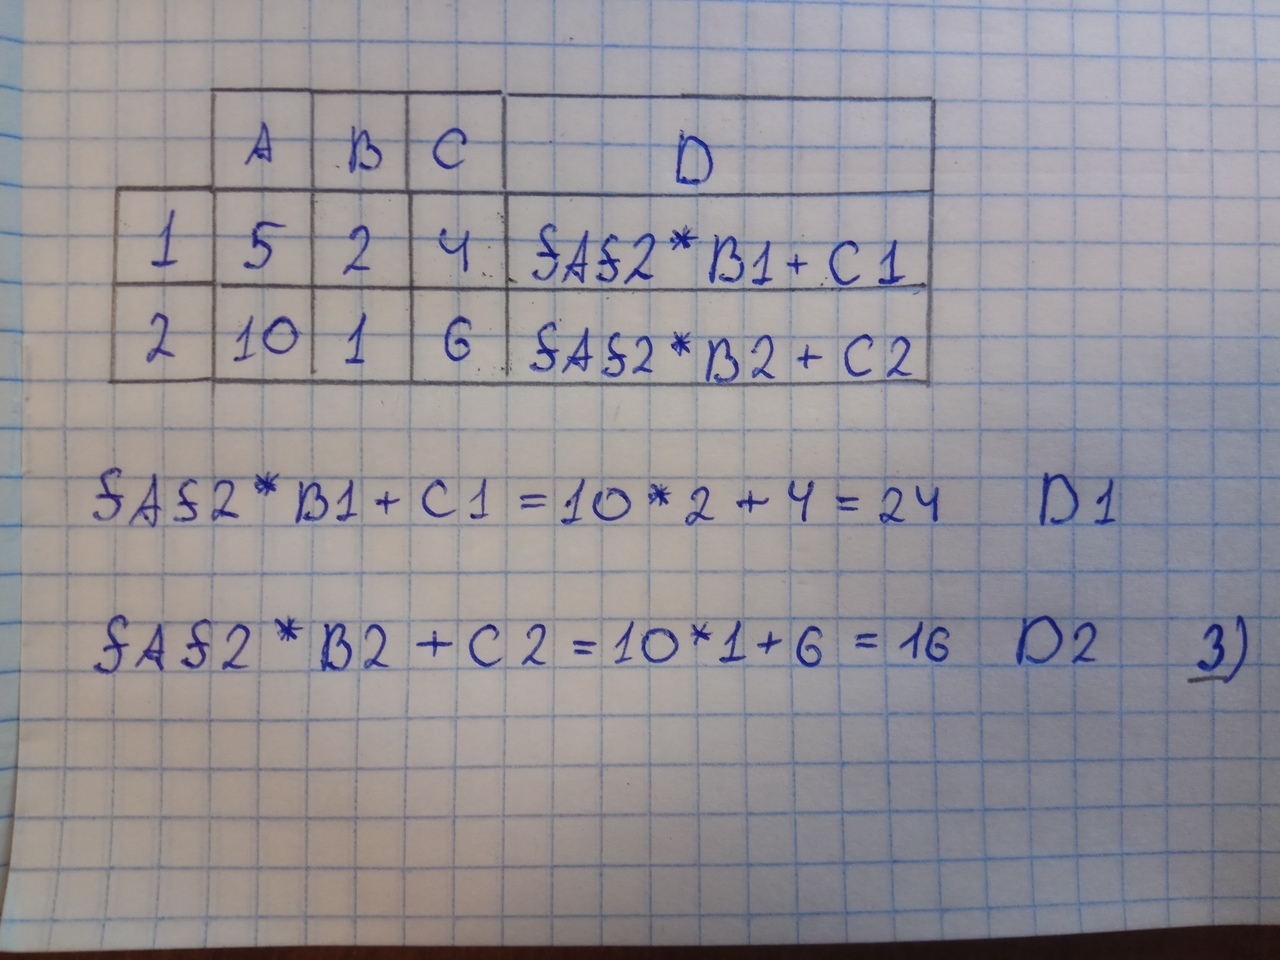 A B C D
1 5 2 4 $A$2*B1+C1
2 10 1 6 $A$2*B2+C2
$A$2*B1+C1=10*2+4=24 D1
$A$2*B2+C2=10*1+6=16 D2 3)